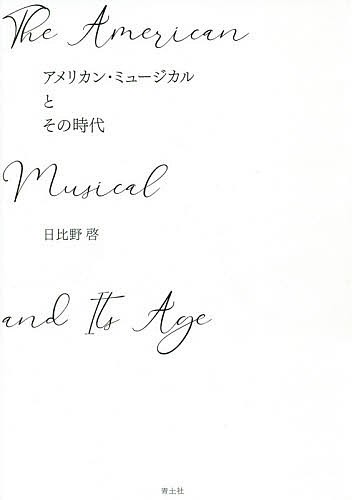 The American
アメリカン・ミュージカル
と
その時代
Musical
日比野 啓
and Its Age
青土社